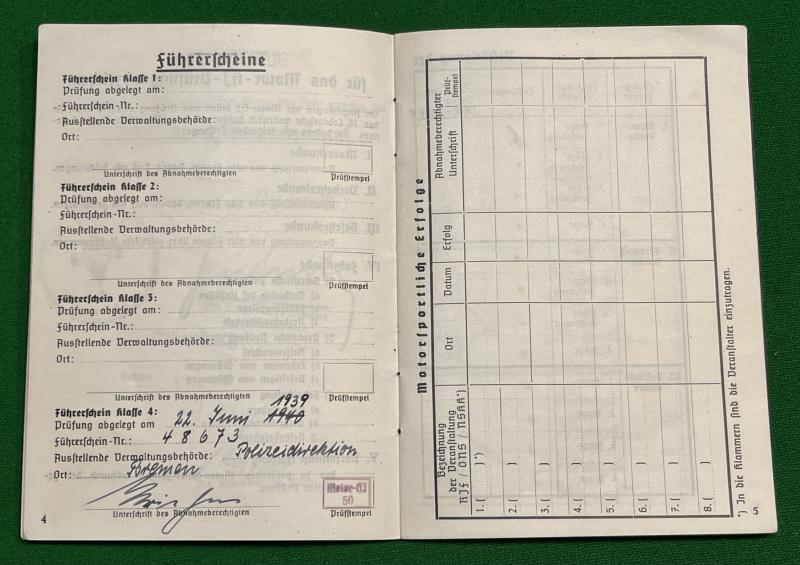 Führerscheine
Führerschein Klasse 1:
Prüfung abgelegt am:
Führerschein-Nr.:
Ausstellende Verwaltungsbehörde:
Ort:
Unterschrift des Abnahmeberechtigten Prüfstempel
Führerschein Klasse 2:
Prüfung abgelegt am:
Führerschein-Nr.:
Ausstellende Verwaltungsbehörde:
Ort:
Unterschrift des Abnahmeberechtigten Prüfstempel
Führerschein Klasse 3:
Prüfung abgelegt am:
Führerschein-Nr.:
Ausstellende Verwaltungsbehörde:
Ort:
Unterschrift des Abnahmeberechtigten Prüfstempel
1939
Führerschein Klasse 4:
Prüfung abgelegt am 22. Juni 1940
Führerschein-Nr.: 48673
Ausstellende Verwaltungsbehörde: Polizeidirektion
Ort: Bremen
Motor-HJ
50
Unterschrift des Abnahmeberechtigten Prüfstempel
4
Motorsportliche Erfolge
Bezeichnung
der Veranstaltung
RJF / ONS / NSKK*)
Ort
Datum
Erfolg
Abnahmeberechtigter
Unterschrift
Prüf-
stempel
1. ( )*)
2. ( )
3. ( )
4. ( )
5. ( )
6. ( )
7. ( )
8. ( )
*) In die Klammern sind die Veranstalter einzutragen.
5